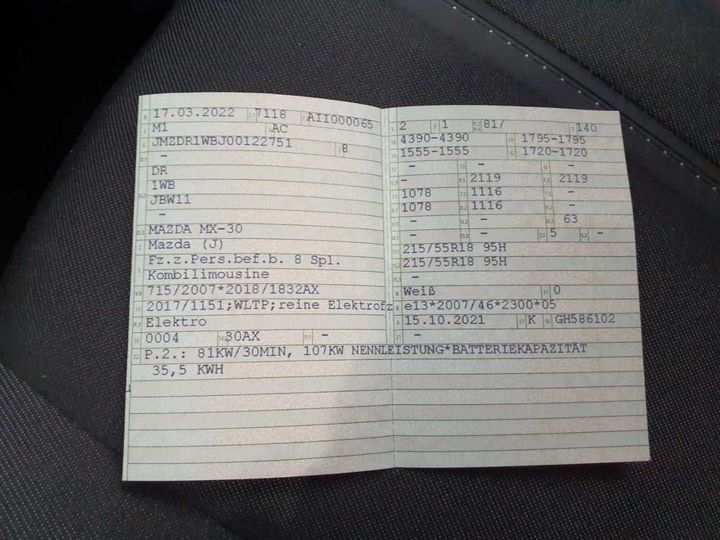 17.03.2022 7118 AII000065
M1 AC
JMZDR1WBJ00122751 8
-
DR
1WB
JBW11
-
MAZDA MX-30
Mazda (J)
Fz.z.Pers.bef.b. 8 Spl.
Kombilimousine
715/2007*2018/1832AX
2017/1151;WLTP;reine Elektrofz
Elektro
0004 30AX -
P.2.: 81KW/30MIN, 107KW NENNLEISTUNG*BATTERIEKAPAZITÄT
35,5 KWH
2 1 81/ 140
4390-4390 1795-1795
1555-1555 1720-1720
- - -
- 2119 2119
1078 1116 -
1078 1116 -
- - 63
- - 5 -
215/55R18 95H
215/55R18 95H
-
Weiß 0
e13*2007/46*2300*05
15.10.2021 K GH586102
-